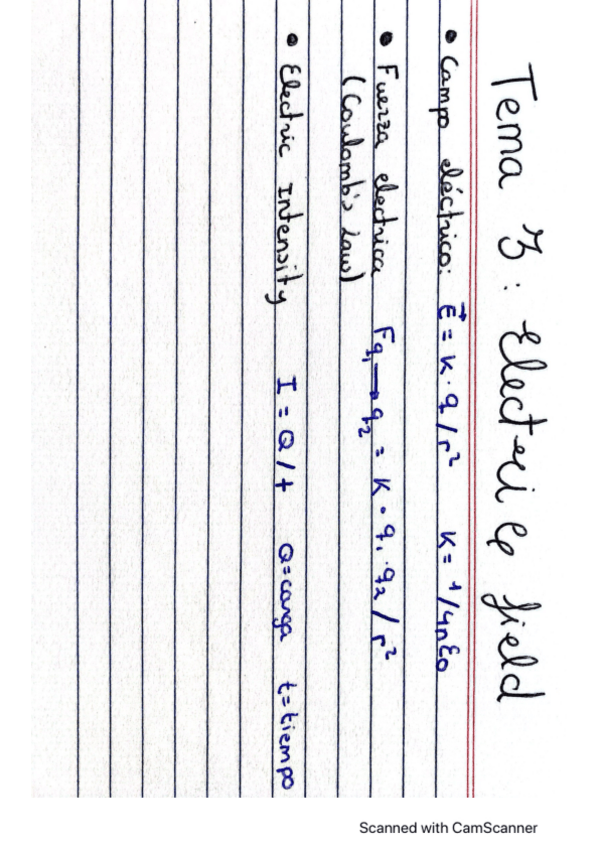 Tema 3: Electric field
• Campo eléctrico: E⃗ = K · q / r² K = 1/4πε0
• Fuerza electrica Fq1 → q2 = K · q1 · q2 / r²
(Coulomb's law)
• Electric Intensity I = Q / t Q = carga t = tiempo
Scanned with CamScanner